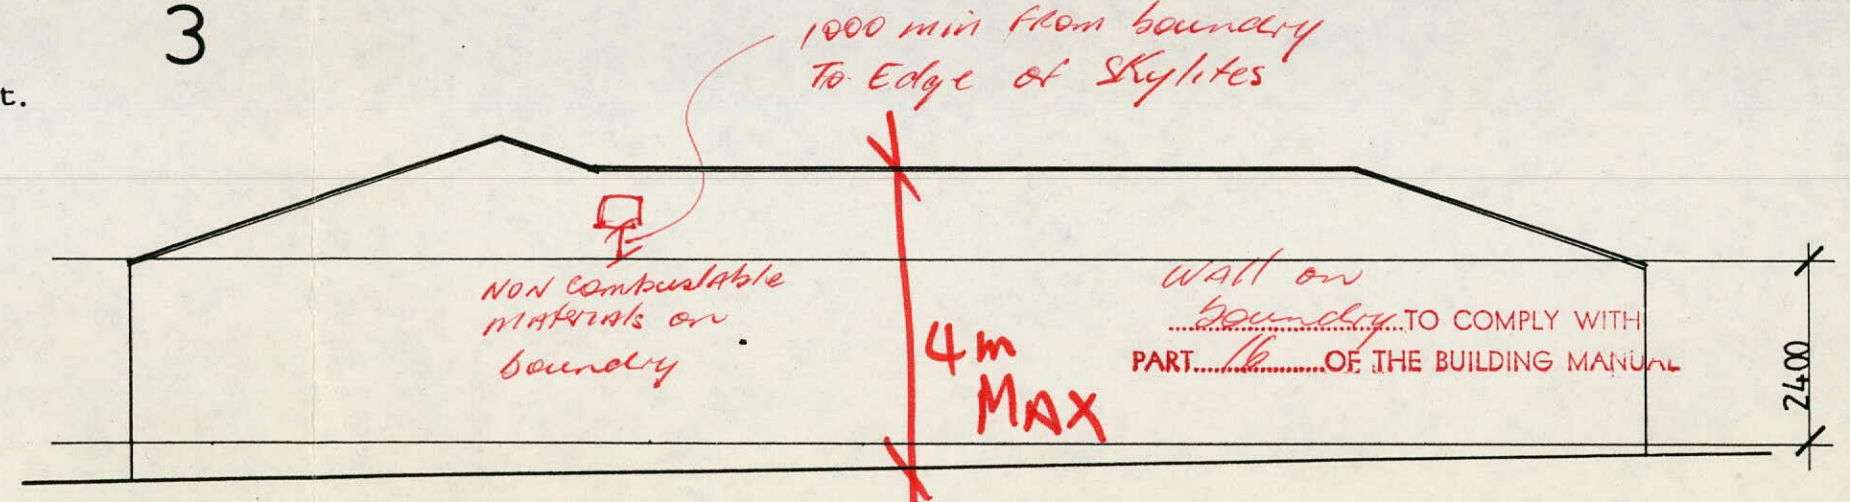 3
t.
1000 min from boundry
To Edge of Skylites
NON Combustable
Materials on
boundry
4m
MAX
Wall on
boundry TO COMPLY WITH
PART 16 OF THE BUILDING MANUAL
2400